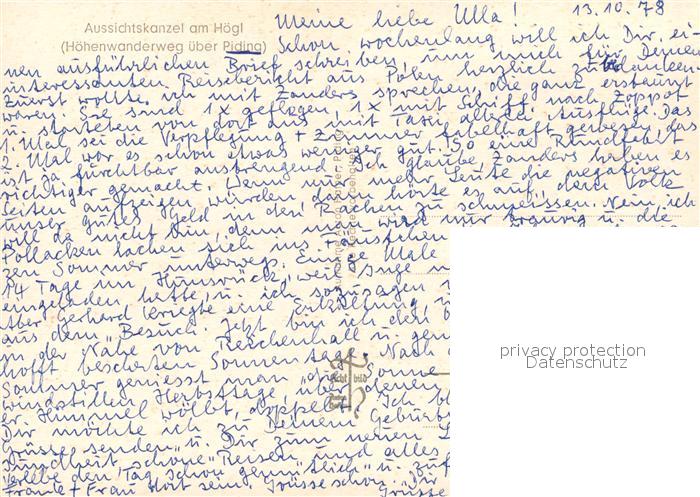 Aussichtskanzel am Högl
(Höhenwanderweg über Piding)
Meine liebe Ulla! 13.10.78
Schon wochenlang will ich Dir, ei-
nen ausführlichen Brief schreiben, um mich für Deinen
interessanten Reisebericht aus Polen herzlich zu bedanken.
Zuerst wollte ich mit Zanders sprechen, die ganz erstaunt
waren. Sie sind 1x geflogen, 1x mit Schiff nach Zoppot
u. starteten von dort aus mit Taxi allerlei Ausflüge. Das
1. Mal sei die Verpflegung + Zimmer fabelhaft gewesen, das
2. Mal war es schon etwas weniger gut. So eine Rundfahrt
ist ja furchtbar anstrengend. Ich glaube, Zanders haben es
richtiger gemacht. Wenn nur mehr Leute die negativen
Seiten aufzeigen würden, das hörte es auf, dem Volk
unser gutes Geld in den Rachen zu schmeissen. Nein, ich
will da nicht hin, denn man wird nur traurig u. die
Pollacken lachen sich ins Fäustchen
zen Sommer unterwegs. Einige Male
14 Tage im Hunsrück, weil Inge
eingeladen hatte, u. ich sozusagen
Aber Gerhard kriegte eine Erkältung
aus dem Besuch. Jetzt bin ich
in der Nähe von Reichenhall u.
hofft bescherten Sonnentage. Nach
Sommer geniesst man die Sonne
windstillen Herbsttage, über denen
er Himmel wölbt, doppelt. Ich
Dir möchte ich zu Deinem Geburts
Grüsse senden u. Dir zum neuen
sundheit, schöne Reisen und alles
verlebe den Tag schön gemütlich u.
Frank + Frau Hört sein Grüsse schön. Dir
Grüsse
privacy protection
Datenschutz